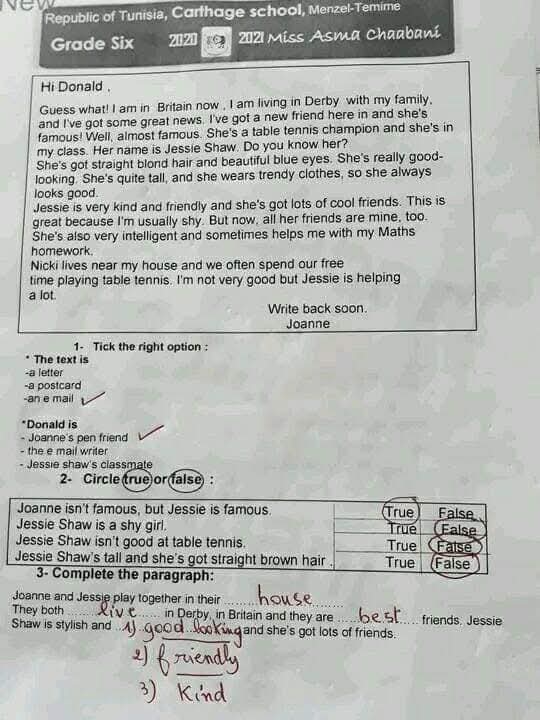 New
Republic of Tunisia, Carthage school, Menzel-Temime
Grade Six 2020 2021 Miss Asma Chaabani
Hi Donald ,
Guess what! I am in Britain now , I am living in Derby with my family,
and I've got some great news. I've got a new friend here in and she's
famous! Well, almost famous. She's a table tennis champion and she's in
my class. Her name is Jessie Shaw. Do you know her?
She's got straight blond hair and beautiful blue eyes. She's really good-
looking. She's quite tall, and she wears trendy clothes, so she always
looks good.
Jessie is very kind and friendly and she's got lots of cool friends. This is
great because I'm usually shy. But now, all her friends are mine, too.
She's also very intelligent and sometimes helps me with my Maths
homework.
Nicki lives near my house and we often spend our free
time playing table tennis. I'm not very good but Jessie is helping
a lot.
Write back soon.
Joanne
1- Tick the right option :
* The text is
-a letter
-a postcard
-an e mail ✓
*Donald is
- Joanne's pen friend ✓
- the e mail writer
- Jessie shaw's classmate
2- Circle true or false :
Joanne isn't famous, but Jessie is famous. True False
Jessie Shaw is a shy girl. True False
Jessie Shaw isn't good at table tennis. True False
Jessie Shaw's tall and she's got straight brown hair . True False
3- Complete the paragraph:
Joanne and Jessie play together in their ........house........
They both ........live........ in Derby, in Britain and they are .....best..... friends. Jessie
Shaw is stylish and 1) good looking and she's got lots of friends.
2) friendly
3) Kind